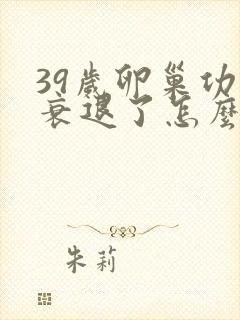 39歲卵巢功
衰退了怎麼
朱莉